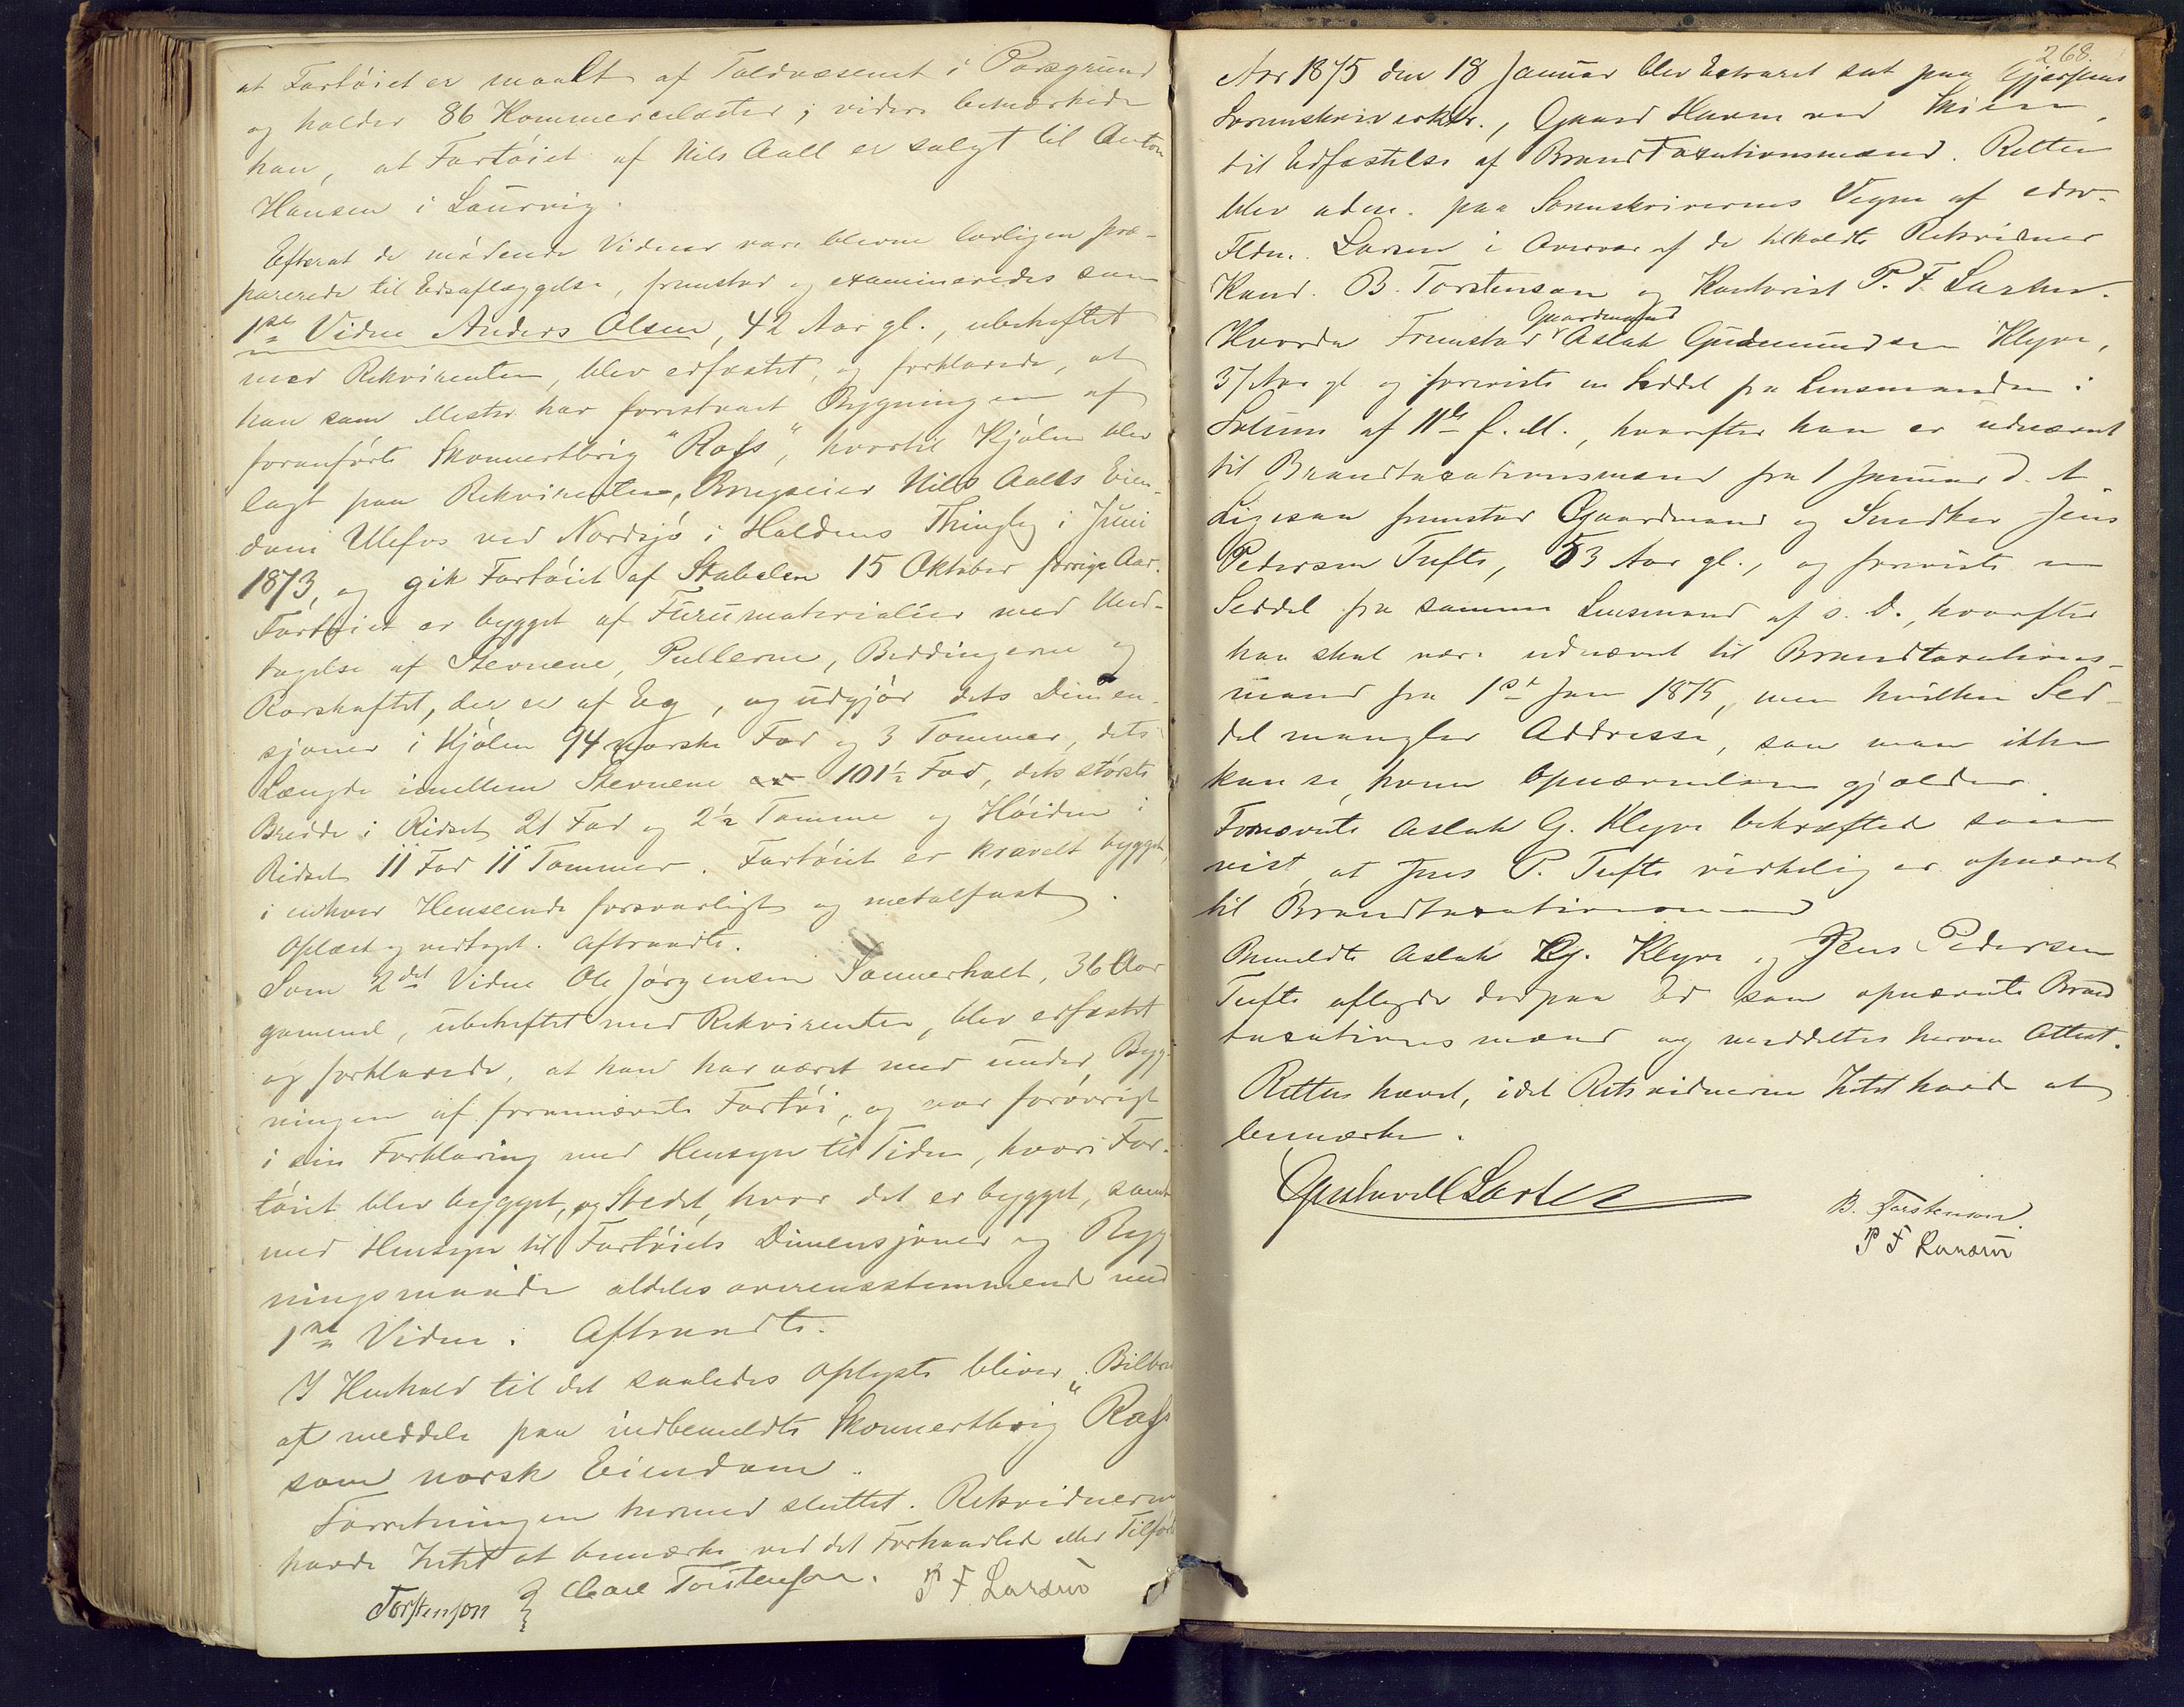 at Fartøiet er maalt af Toldvæsenet i Porsgrund
og holder 86 Kommercelæster; videre bemærkede
han, at Fartøiet af Nils Aall er solgt til Anton
Hansen i Laurvig.
Efterat de mødende Vidner vare blevne lovligen præ-
parerede til Edsaflæggelse, fremstod og examineredes som
1ste Vidne Anders Olsen, 42 Aar gl., ubeheftet
med Rekvirenten, blev edfæstet, og forklarede, at
han som Mester har forestaaet Bygningen af
foranførte Skonnertbrig "Rafs", hvortil Kjølen blev
lagt paa Rekvirenten, Brugseier Nils Aalls Eien-
dom Ulefos ved Nordsjø i Holdens Thinglag i Juni
1873, og gik Fartøiet af Stabelen 15 Oktober forrige Aar.
Fartøiet er bygget af Furumaterialier med Und-
tagelse af Stevnene, Pullerne, Beddingerne og
Rorskaftet, der er af Eg, og udgjør dets Dimen-
sjoner i Kjølen 94 norske Fod og 3 Tommer, dets
Længde imellem Stevnene 101½ Fod, dets største
Bredde i Ridset 21 Fod og 2½ Tomme og Høiden i
Ridset 11 Fod 11 Tommer. Fartøiet er kravelt bygget,
i enhver Henseende forsvarligt og metalfast.
Oplæst og vedtaget. Aftraadte.
Som 2det Vidne Ole Jørgensen Sannerholt, 36 Aar
gammel, ubeheftet med Rekvirenten, blev edfæstet
og forklarede, at han har været med under Byg-
ningen af forannævnte Fartøi, og var forøvrigt
i sin Forklaring med Hensyn til Tiden, hvori Far-
tøiet blev bygget, og Stedet, hvor det er bygget, samt
med Hensyn til Fartøiets Dimensjoner og Byg-
ningsmaade aldeles overensstemmende med
1ste Vidne. Aftraadte.
I Henhold til det saaledes Oplyste bliver Bilbrev
at meddele paa indbemeldte Skonnertbrig "Rafs
som norsk Eiendom.
Forretningen hermed sluttet. Retsvidnerne
havde Intet at bemærke ved det Forhandlede eller Tilførte
Torstenson Carl Torstensen. P F Larsen
268.
Aar 1875 den 18 Januar blev Extraret sat paa Gjerpens
Sorenskriverktr., Gaard Haven ved Skien,
til Edfæstelse af Brandtaxationsmænd. Retten
blev adm. paa Sorenskriverens Vegne af edsv.
Fldm. Larsen i Overvær af de tilkaldte Retsvidner
Kand. B. Torstenson og Kontorist P. F. Larsen.
Gaardmand
Hvorda Fremstod Aslak Gudmundsen Klyve,
37 Aar gl. og foreviste en Seddel fra Lensmanden i
Solum af 11te f. M., hvorefter han er udnævnt
til Brandtaxationsmand fra 1 Januar d. A.
Ligesaa fremstod Gaardmand og Snedker Jens
Pedersen Tufte, 53 Aar gl., og foreviste en
Seddel fra samme Lensmand af s. D., hvorefter
han skal være udnævnt til Brandtaxations-
mand fra 1st Jan 1875, men hvilken Sed-
del mangler Addresse, saa man ikke
kan se, hvem Opnævnelsen gjælder.
Fornævnte Aslak G. Klyve bekræfted som
vist, at Jens P. Tufte virkelig er opnævnt
til Brandtaxationsmand
Bemeldte Aslak G. Klyve og Jens Pedersen
Tufte aflagde derpaa Ed som opnævnte Brand
taxationsmænd og meddeltes herom Attest.
Retten hævet, idet Retsvidnerne Intet havde at
bemærke.
Larsen
B. Torstenson.
P F Larsen